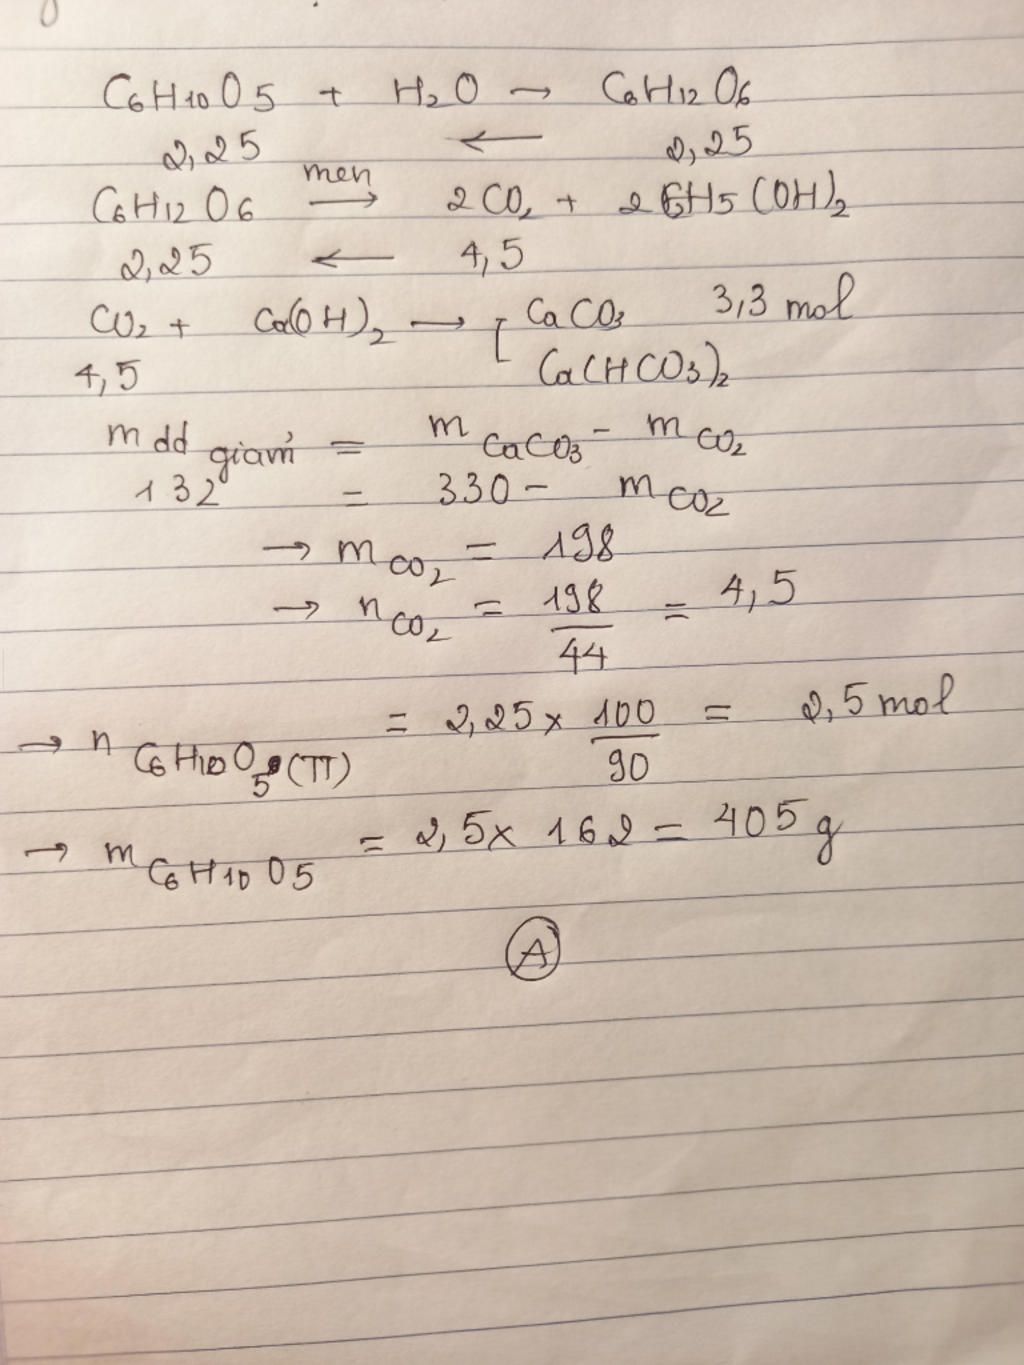 C6H10O5 + H2O → C6H12O6
2,25 ← 2,25
C6H12O6 men → 2CO2 + 2C2H5(OH)2
2,25 ← 4,5
CO2 + Ca(OH)2 → [ CaCO3 3,3 mol
4,5 Ca(HCO3)2
m dd giảm = m CaCO3 - m CO2
132 = 330 - m CO2
→ m CO2 = 198
→ n CO2 = 198/44 = 4,5
→ n C6H10O5 (TT) = 2,25 x 100/90 = 2,5 mol
→ m C6H10O5 = 2,5 x 162 = 405 g
A